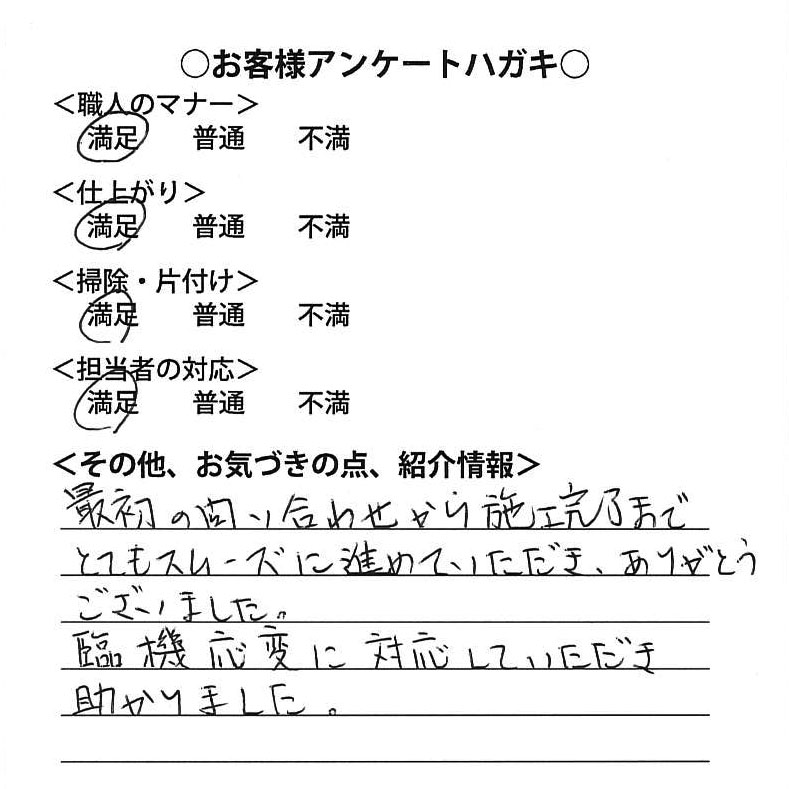 ○お客様アンケートハガキ○
＜職人のマナー＞
満足 普通 不満
＜仕上がり＞
満足 普通 不満
＜掃除・片付け＞
満足 普通 不満
＜担当者の対応＞
満足 普通 不満
＜その他、お気づきの点、紹介情報＞
最初の問い合わせから施工完了まで
とてもスムーズに進めていただき、ありがとう
ございました。
臨機応変に対応していただき
助かりました。